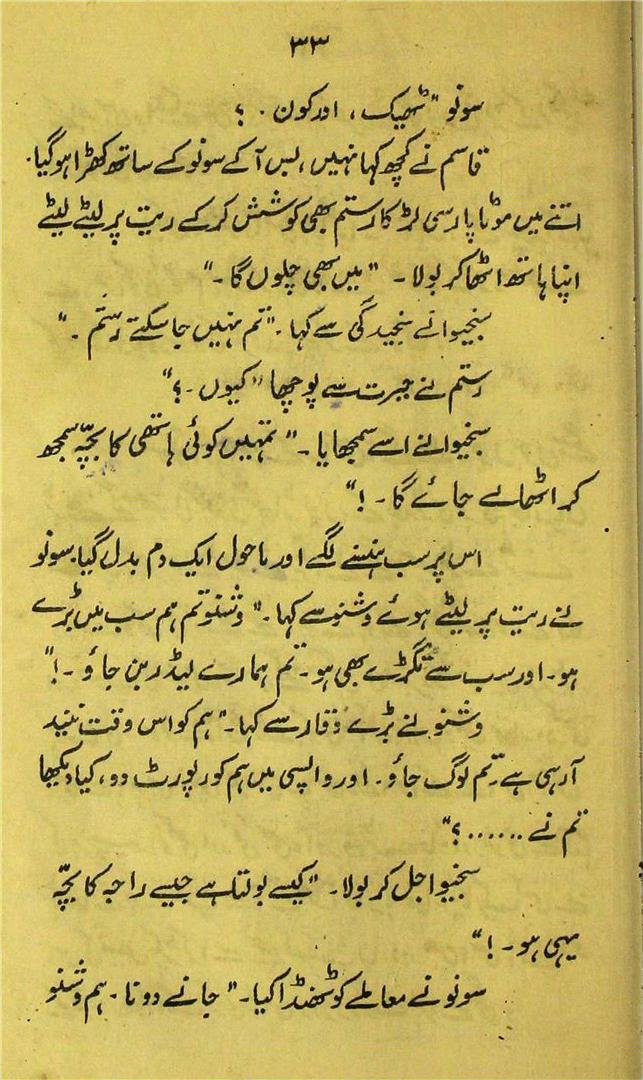 ۳۳
سونو "ٹھیک، اور کون۔ ؟
قاسم نے کچھ کہا نہیں، بس آ کے سونو کے ساتھ کھڑا ہو گیا۔
اتنے میں موٹا پارسی لڑکا رستم بھی کوشش کر کے ریت پر لیٹے لیٹے
اپنا ہاتھ اٹھا کر بولا۔ "میں بھی چلوں گا۔"
سنجیوا نے سنجیدگی سے کہا۔ "تم نہیں جا سکتے رستم۔"
رستم نے حیرت سے پوچھا "کیوں۔؟"
سنجیوا نے اسے سمجھایا۔ "تمہیں کوئی ہاتھی کا بچّہ سمجھ
کر اٹھا لے جائے گا۔!"
اس پر سب ہنسنے لگے اور ماحول ایک دم بدل گیا۔ سونو
نے ریت پر لیٹے ہوئے وشنو سے کہا۔ "وشنو تم ہم سب میں بڑے
ہو۔ اور سب سے تگڑے بھی ہو۔ تم ہمارے لیڈر بن جاؤ۔!"
وشنو نے بڑے وقار سے کہا۔ "ہم کو اس وقت نیند
آ رہی ہے۔ تم لوگ جاؤ۔ اور واپسی میں ہم کو رپورٹ دو، کیا دیکھا
تم نے ......؟"
سنجیوا جل کر بولا۔ "کیسے بولتا ہے جیسے راجہ کا بچّہ
یہی ہو۔!"
سونو نے معاملے کو ٹھنڈا کیا۔ "جانے دو نا۔ ہم وشنو